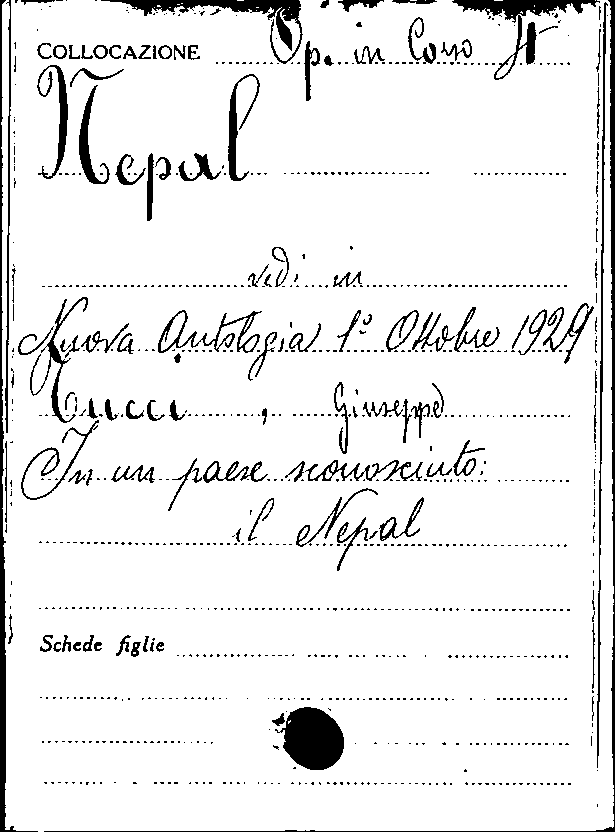 COLLOCAZIONE Op. in Corso
Nepal
vedi in
Nuova Antologia 1º Ottobre 1929
Tucci, Giuseppe
In un paese sconosciuto:
il Nepal
Schede figlie